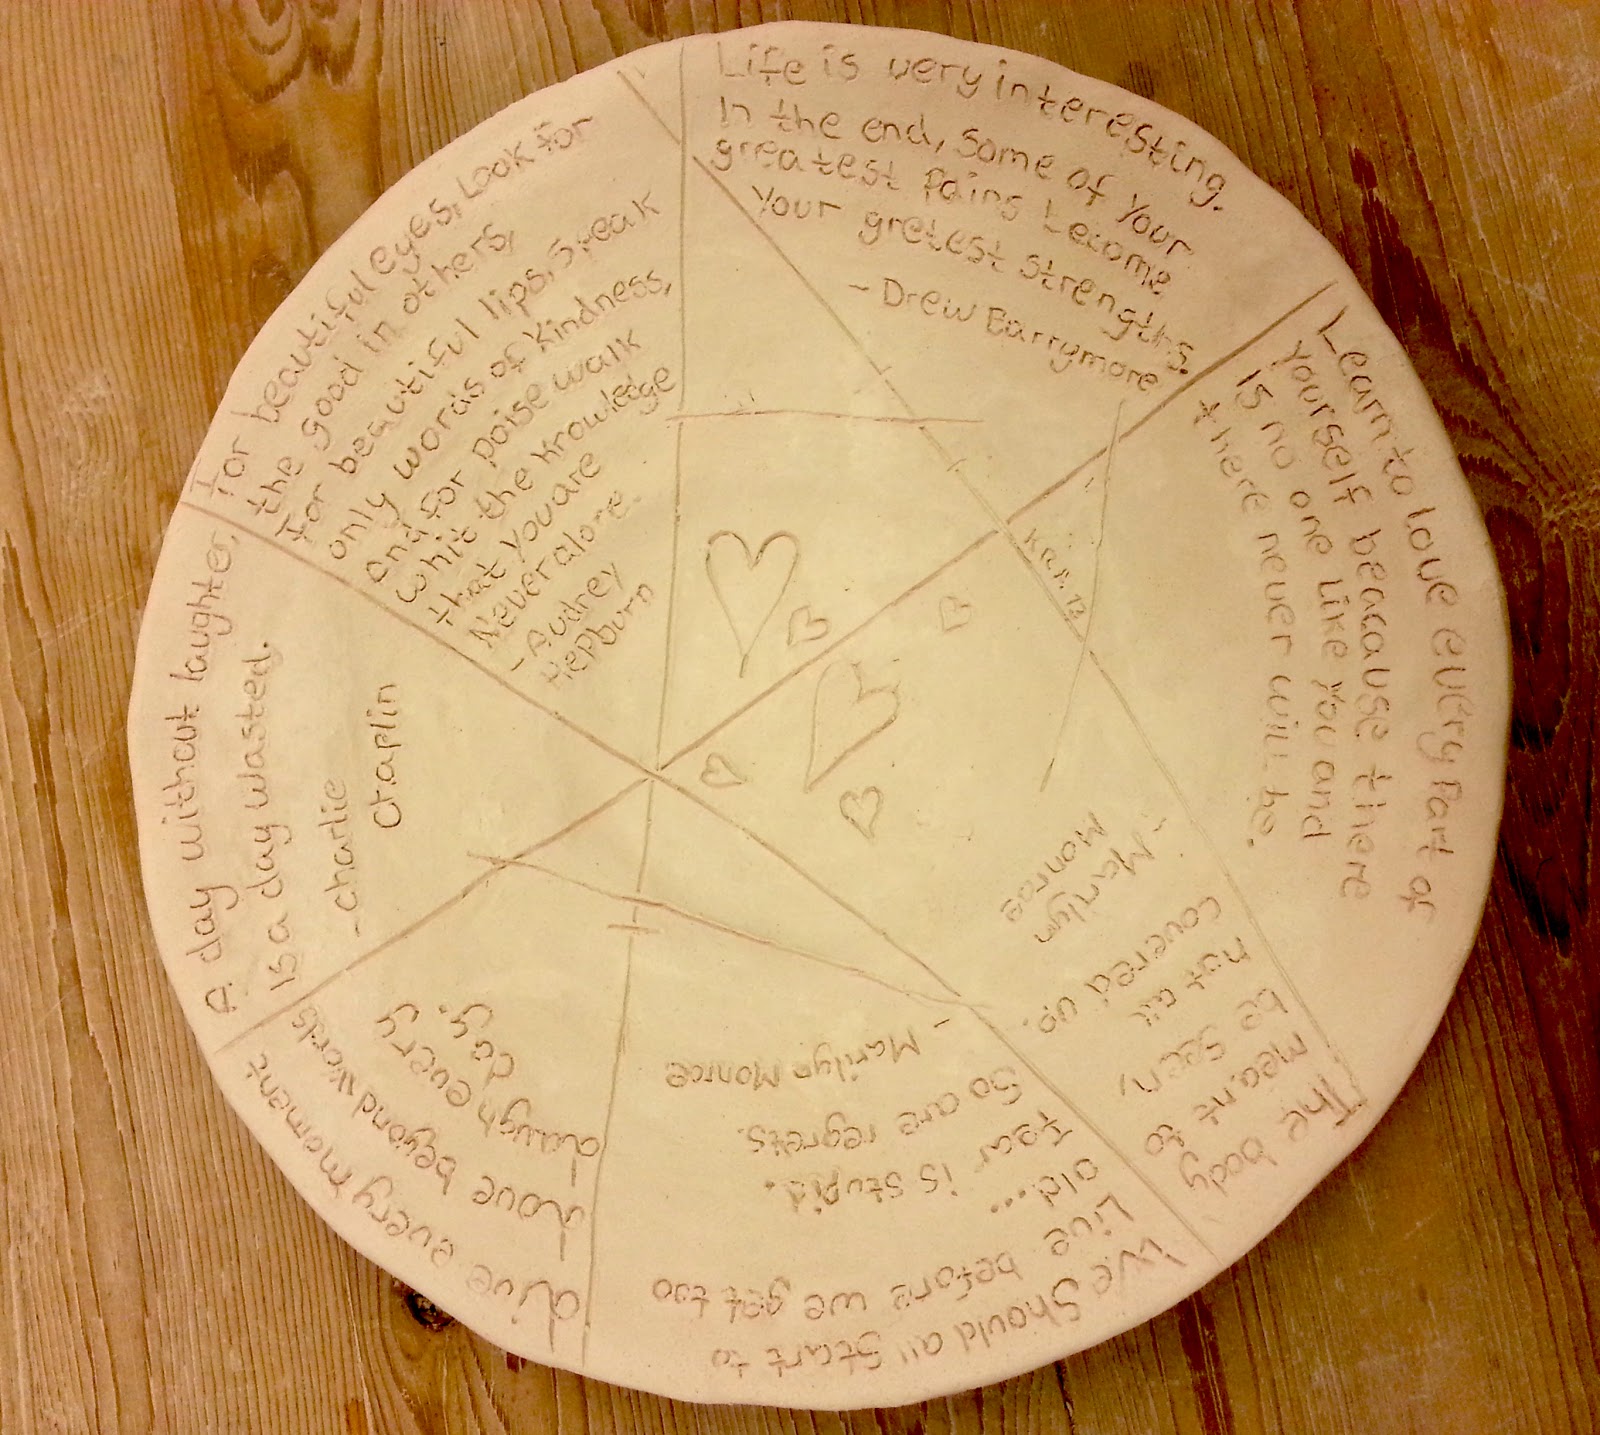 Life is very interesting.
In the end, some of your
greatest pains become
your gretest strengths.
- Drew Barrymore
Learn to love every part of
yourself beacause there
is no one like you and
there never will be.
- Marilyn
Monroe
The body
meant to
be seen,
not all
covered up.
We should all start to
Live before we get too
old...
Fear is stupid.
So are regrets.
- Marilyn Monroe
Live every moment
Love beyond words
Laugh every
day.
A day without laughter,
is a day wasted.
- charlie
Chaplin
For beautiful eyes, Look for
the good in others,
For beautiful lips, speak
only words of kindness,
and for poise walk
whit the knowledge
that you are
Never alone.
- Audrey
Hepburn